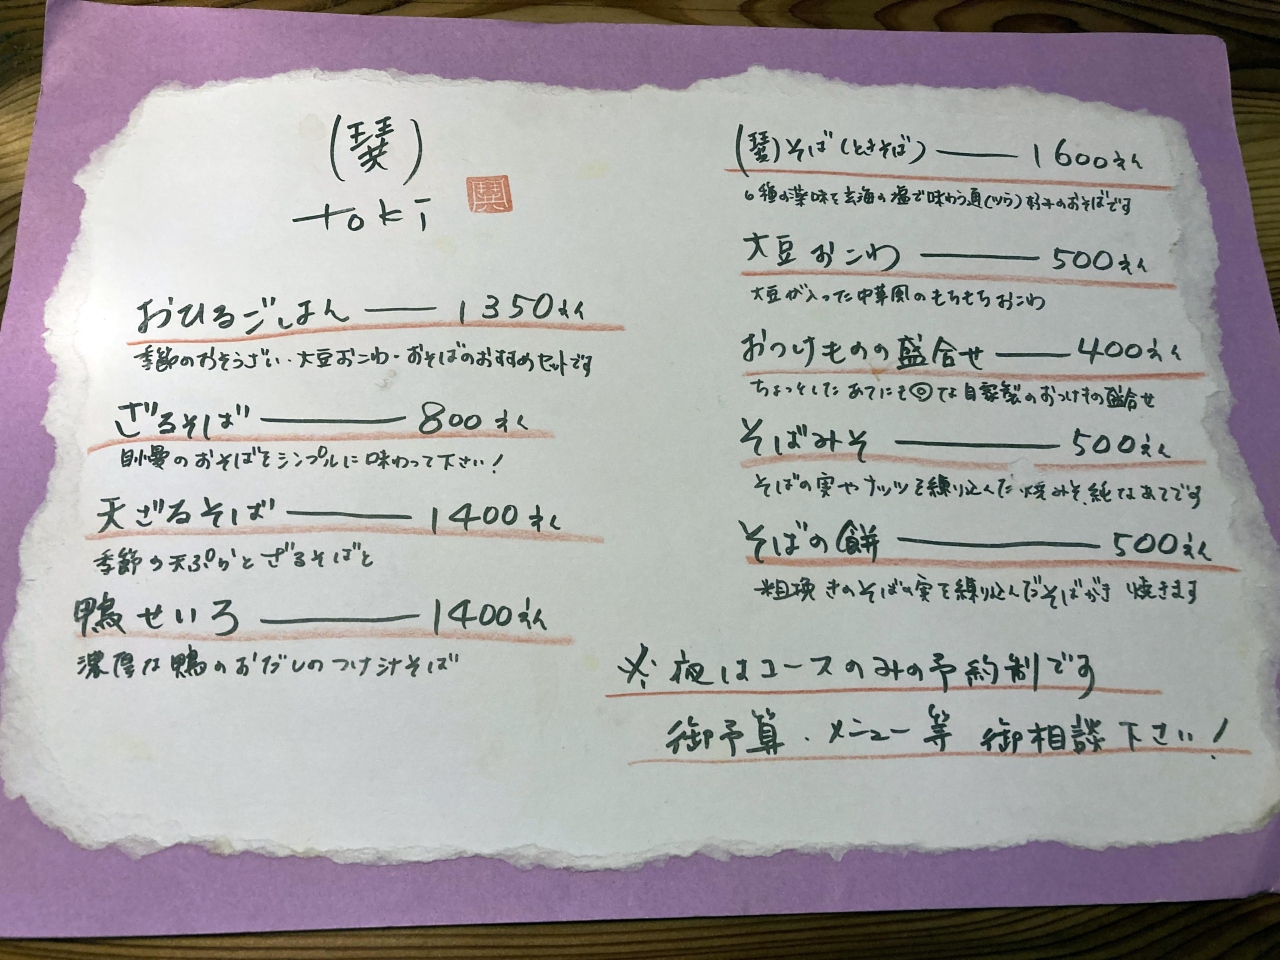 toki
おひるごはん ── 1350えん
季節のおそうざい・大豆おこわ・おそばのおすすめセットです
ざるそば ── 800えん
自慢のおそばをシンプルに味わって下さい!
天ざるそば ── 1400えん
季節の天ぷらとざるそばと
鴨せいろ ── 1400えん
濃厚な鴨のおだしのつけ汁そば
そば(ときそば) ── 1600えん
6種の薬味を玄海の塩で味わう通(つう)好みのおそばです
大豆おこわ ── 500えん
大豆が入った中華風のもちもちおこわ
おつけものの盛合せ ── 400えん
ちょっとした あてにも◎な自家製のおつけもの盛合せ
そばみそ ── 500えん
そばの実やナッツを練り込んだ焼みそ、純なあてです
そばの餅 ── 500えん
粗挽きのそばの実を練り込んだそばがき 焼きます
※夜はコースのみの予約制です
御予算・メニュー等 御相談下さい!